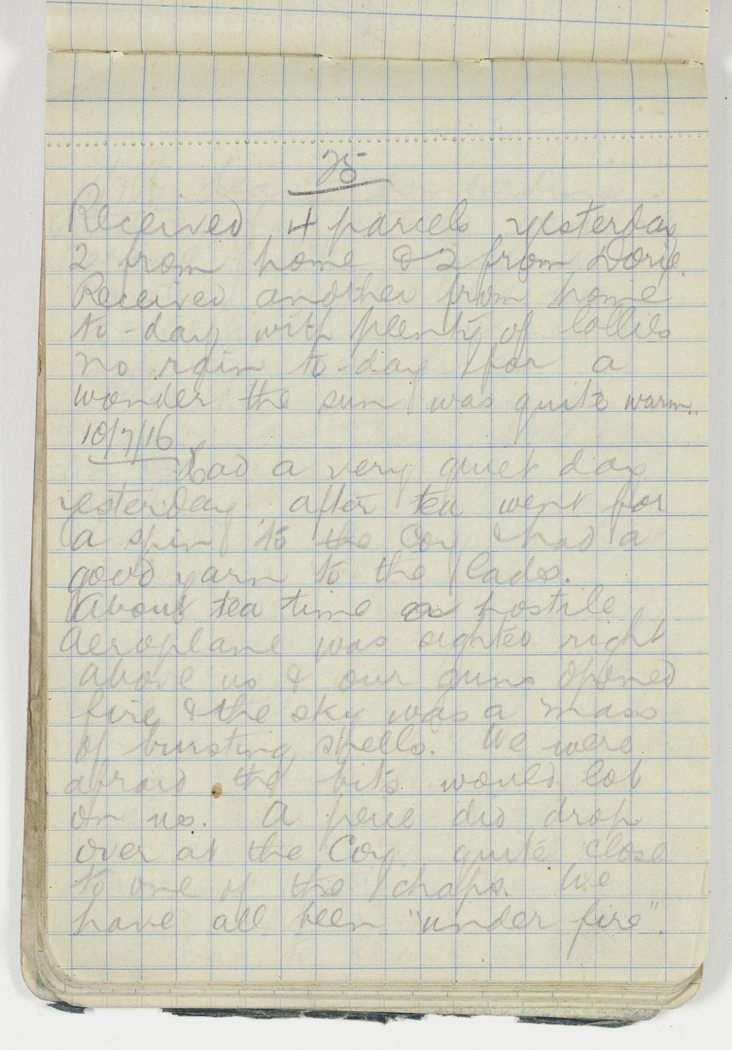 25
Received 4 parcels yesterday
2 from home & 2 from Dorie.
Received another from home
to-day with plenty of lollies
no rain to-day & for a
wonder the sun was quite warm.
10/7/16
Had a very quiet day
yesterday after tea went for
a spin to the Coy & had a
good yarn to the lads.
About tea time a hostile
Aeroplane was sighted right
above us & our guns opened
fire & the sky was a mass
of bursting shells. We were
afraid the bits would lob
on us. A peice did drop
over at the Coy quite close
to one of the chaps. We
have all been "under fire".